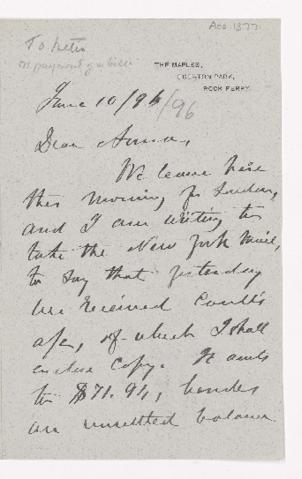 Acc. 1377.
To Peter
on payment of a bill
THE MAPLES,
PARK,
ROCK FERRY.
June 10/96 /96
Dear Anna,
We leave here
this morning for London,
and I am writing to
take the New York Mail,
to say that yesterday
we received Coutt's
a/c, of which I shall
enclose copy. It amts
to $71.94, besides
an unsettled balance